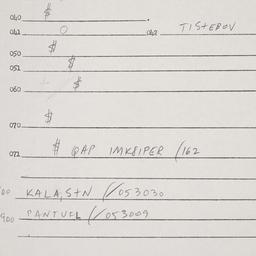 040 $
041 0 042 TISTEBOV
050 $
051 $
060 $
070 $
072 # QAP IMKEIPER /162
KALA, STN //053030
900 PANTUFL //053009